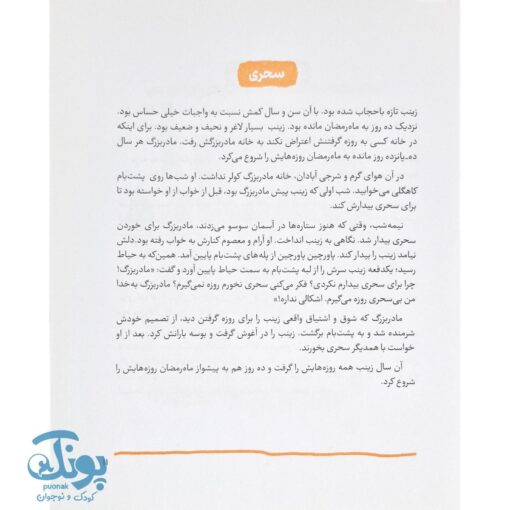 سحری
زینب تازه باحجاب شده بود. با آن سن و سال کمش نسبت به واجبات خیلی حساس بود.
نزدیک ده روز به ماه‌رمضان مانده بود. زینب بسیار لاغر و نحیف و ضعیف بود. برای اینکه
در خانه کسی به روزه گرفتنش اعتراض نکند به خانه مادربزرگش رفت. مادربزرگ هر سال
ده‌ـ‌پانزده روز مانده به ماه‌رمضان روزه‌هایش را شروع می‌کرد.
در آن هوای گرم و شرجی آبادان، خانه مادربزرگ کولر نداشت. او شب‌ها روی پشت‌بام
کاهگلی می‌خوابید. شب اولی که زینب پیش مادربزرگ بود، قبل از خواب از او خواسته بود تا
برای سحری بیدارش کند.
نیمه‌شب، وقتی که هنوز ستاره‌ها در آسمان سوسو می‌زدند، مادربزرگ برای خوردن
سحری بیدار شد. نگاهی به زینب انداخت. او آرام و معصوم کنارش به خواب رفته بود. دلش
نیامد زینب را بیدار کند. پاورچین پاورچین از پله‌های پشت‌بام پایین آمد. همین‌که به حیاط
رسید؛ یکدفعه زینب سرش را از لبه پشت‌بام به سمت حیاط پایین آورد و گفت: «مادربزرگ!
چرا برای سحری بیدارم نکردی؟ فکر می‌کنی سحری نخورم روزه نمی‌گیرم؟ مادربزرگ به‌خدا
من بی‌سحری روزه می‌گیرم. اشکالی نداره!»
مادربزرگ که شوق و اشتیاق واقعی زینب را برای روزه گرفتن دید، از تصمیم خودش
شرمنده شد و به پشت‌بام برگشت. زینب را در آغوش گرفت و بوسه بارانش کرد. بعد از او
خواست با همدیگر سحری بخورند.
آن سال زینب همه روزه‌هایش را گرفت و ده روز هم به پیشواز ماه‌رمضان روزه‌هایش را
شروع کرد.
پونک
puonak
کودک و نوجوان